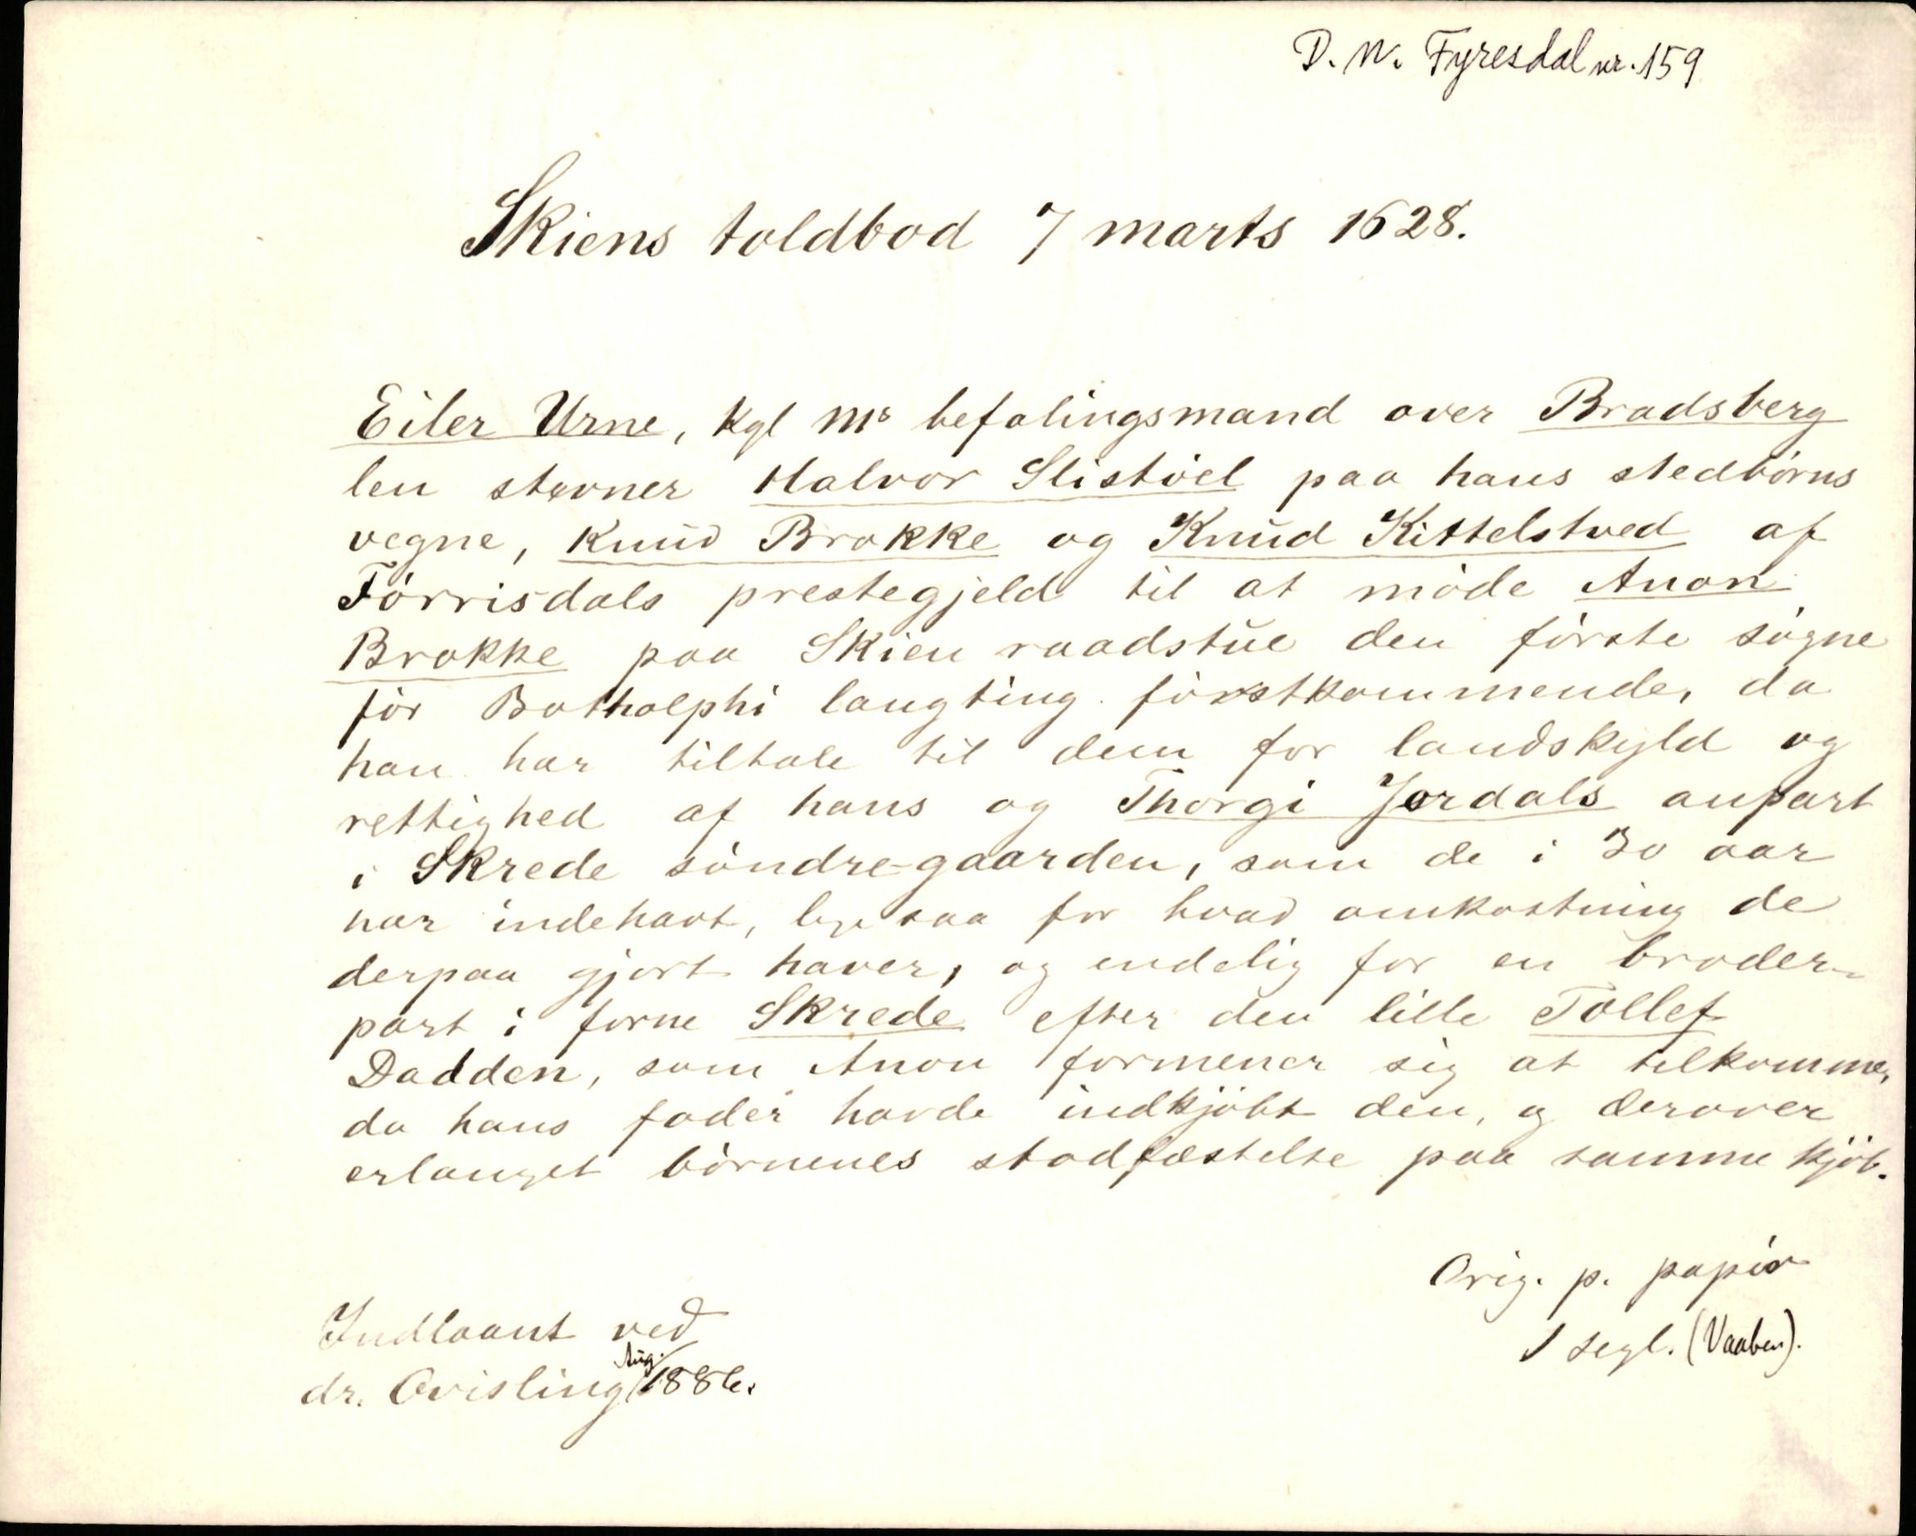 D. N. Fyresdal nr. 159
Skiens toldbod 7 marts 1628.
Eiler Urne, kgl Ms befalingsmand over Bradsberg
len stevner Halvor Slistöel paa hans stedbörns
vegne, Knud Brokke og Knud Kittelstved af
Förrisdals prestegjeld til at möde Anon
Brokke paa Skien raadstue den förste sögne
för Botholphi laugting förstkommende, da
han har tiltale til dem for landskyld og
rettighed af hans og Thorgi Jordals anpart
i Skrede söndre-gaarden, som de i 30 aar
har indehavt, ligesaa for hvad omkostning de
derpaa gjort haver, og endelig for en broder-
part i forne Skrede efter den lille Tollef
Dadden, som Anon formener sig at tilkomme,
da hans fader havde indkjöbt den, og derover
erlanget börnenes stadfæstelse paa samme kjöb.
Orig. p. papir
1 segl. (Vaaben).
Indlaant ved
dr. Qvisling Aug. 1886.